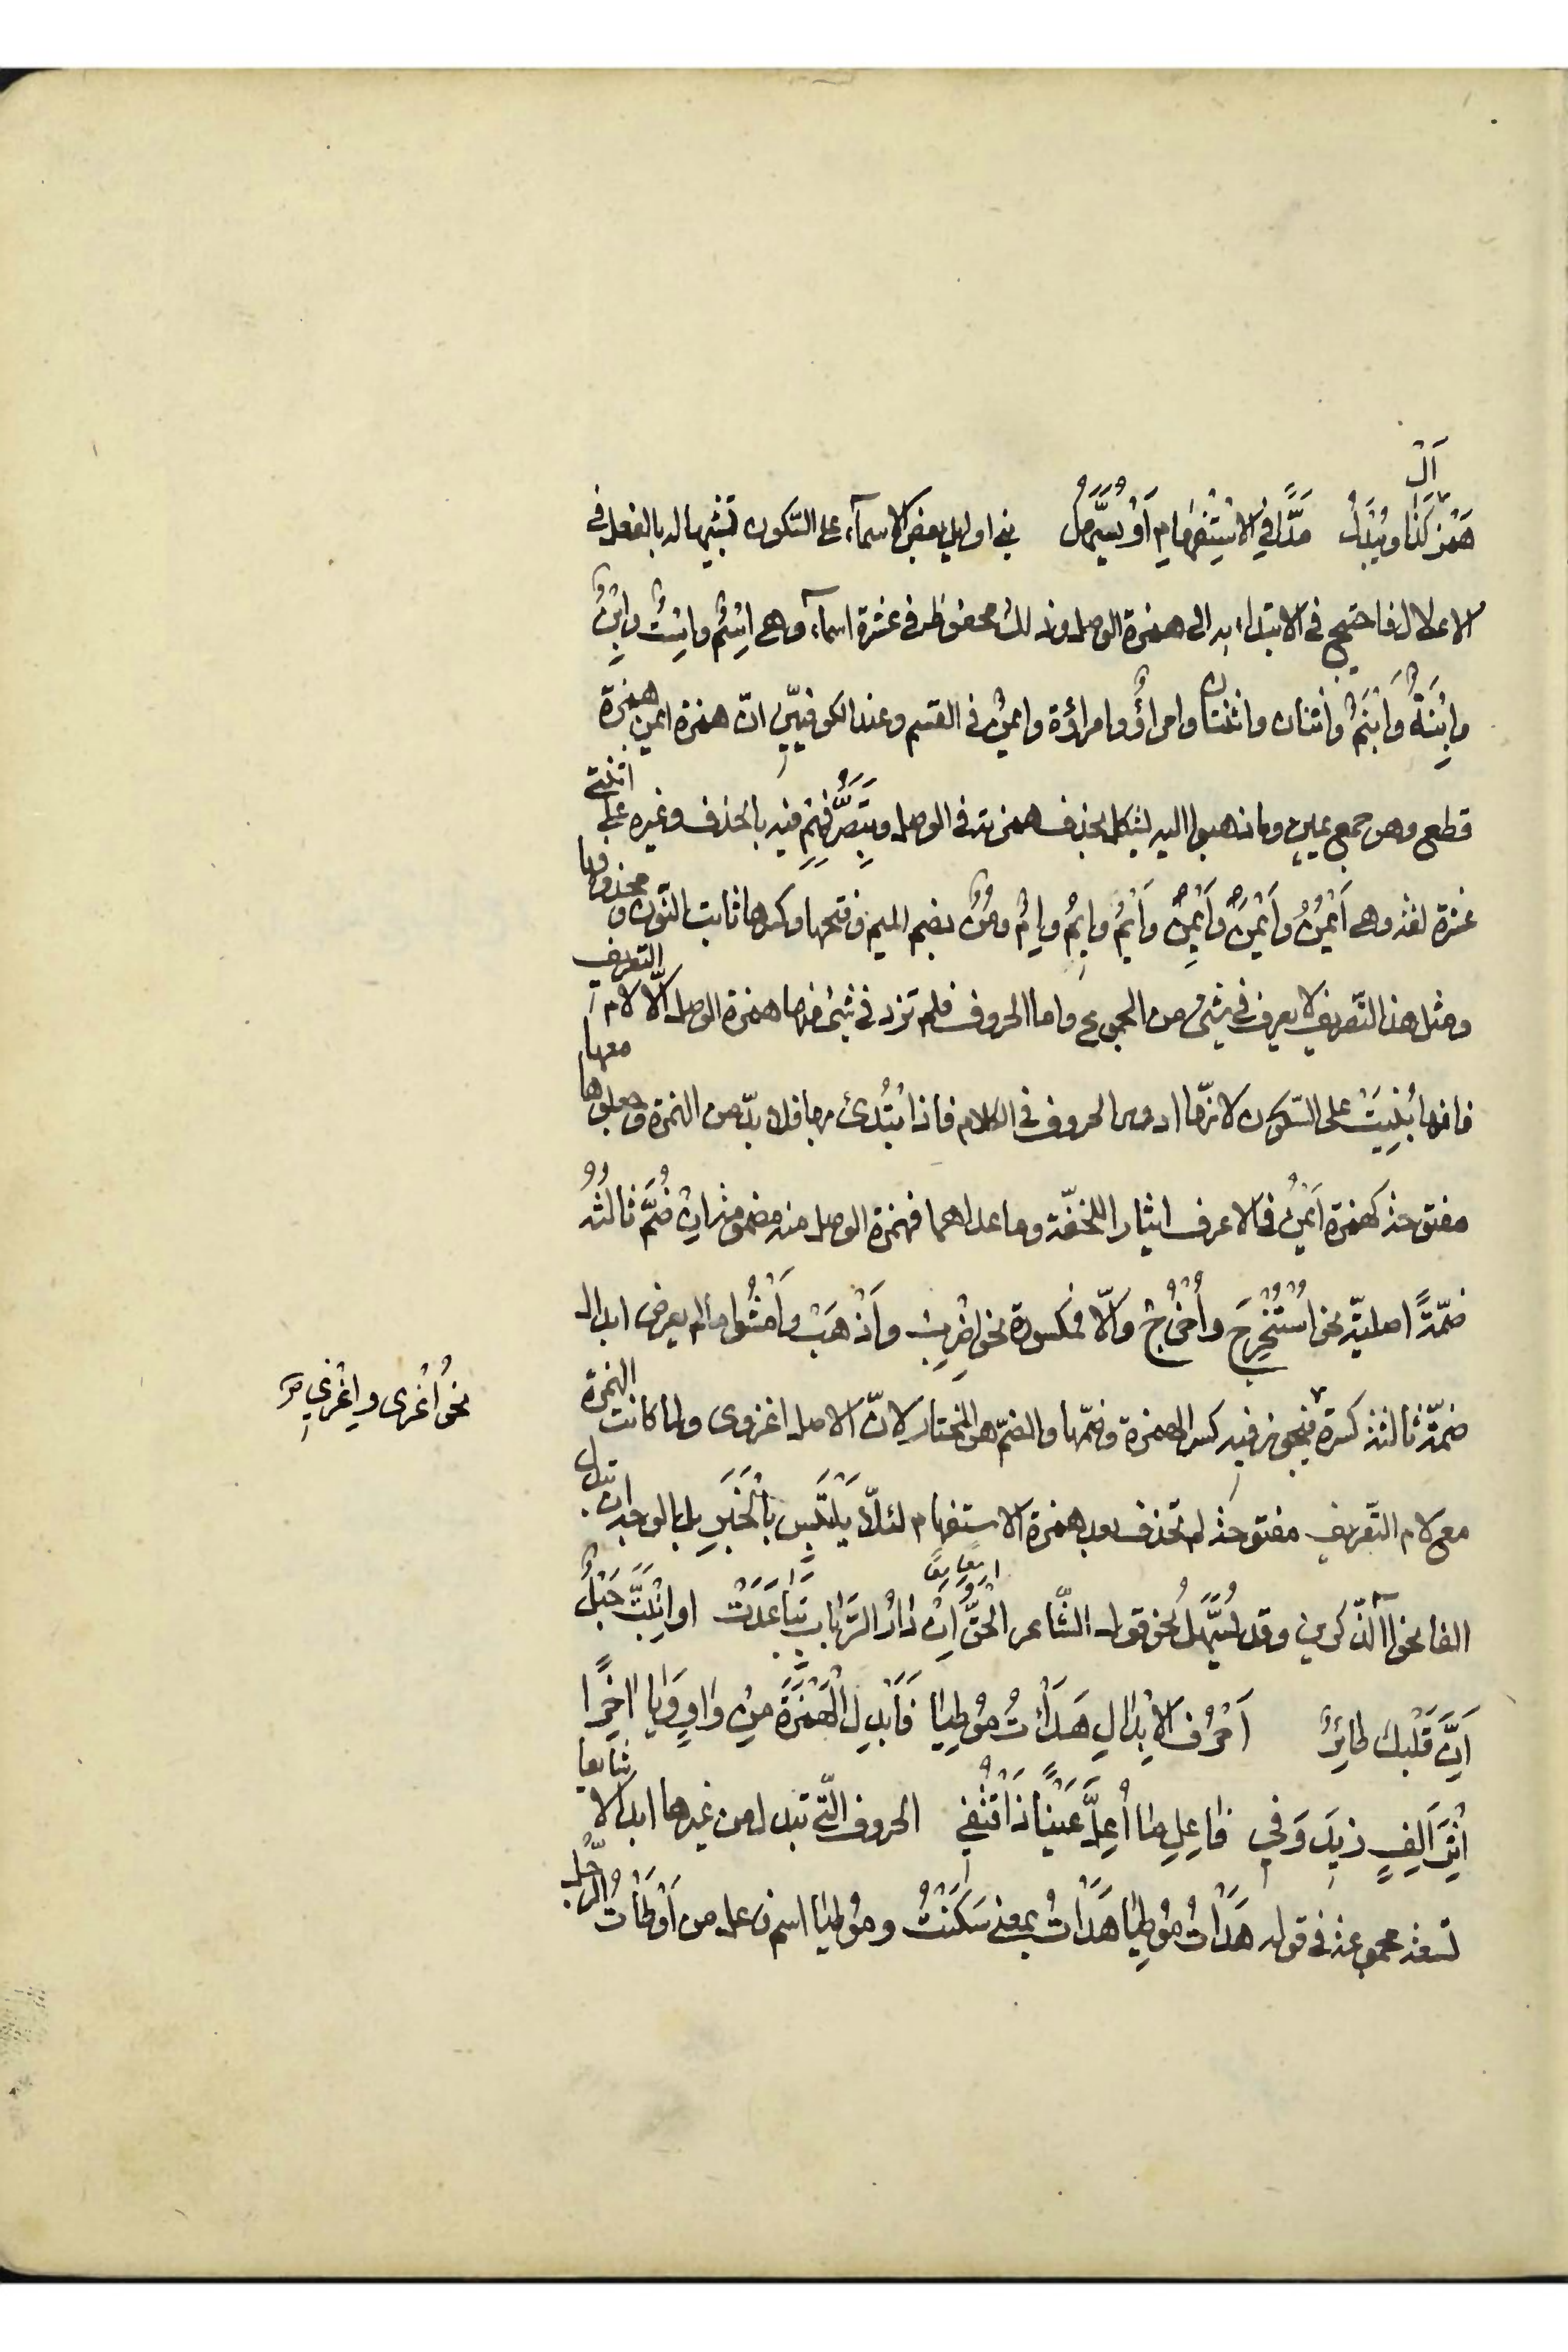 اَلْ
هَمْزُ كَذَا وَيُبْدَلُ مَدًّا فِي الْاِسْتِفْهَامِ اَوْ يُسَهَّلُ بني اوايل بعض الاسمآء على السّكون تشبيها له بالفعل في
الاعلال فاحتيج في الابتداء به الى همزة الوصل وذلك محفوظ في عشرة اسمآء وهى اِسْمٌ وَاِسْتٌ وَاِبْنٌ
وَاِبْنَةٌ وَاِبْنَمٌ واثنان واثنتان وامرأٌ وامرأة وايمنُ في القسم وعند الكوفيّين انّ همزة ايمن همزة
قطع وهو جمع يمين وما ذهبوا اليه يشكل بحذف همزته في الوصل وبِتَصَرُّفِهِمْ فيه بالحذف وغيره على اثنتى
عشرة لغة وهى اَيْمُنُ وَاَيْمَنُ وَاَيْمِنُ وَاَيْمُ وَاِيْمُ وَاِمُ وَمُنُ بضم الميم وفتحها وكسرها ثابت النّون ومحذوفها
ومثل هذا التّصريف لا يعرف في شئ من الجموع واما الحروف فلم تزد في شئ منها همزة الوصل الّا لام التعريف
فانها بُنِيَتْ على السّكون لانّها ادور الحروف في الكلام فاذا ابْتُدئ بها فلا بدّ من الهمزة معها وجعلوها
مفتوحة كهمزة اَيْمُن في الاعرف ايثارا للخفّة وما عداهما فهمزة الوصل منه مضمومة ان ضُمَّ ثالثُهُ
ضمّةً اصليّة نحو اُسْتُخْرِجَ واُخْرُجْ والّا فمكسورة نحو اِضْرِبْ واِذْهَبْ وامْشُوا مالم يعرض ابدال
ضمّة ثالثه كسرة فيجوز فيه كسر الهمزة وضمّها والضمّ هو المختار لانّ الاصل اغزوى ولما كانت الهمزة
نحو اُغْزِى وِاِغْزِي صح
مع لام التّعريف مفتوحة لم تحذف بعد همزة الاستفهام لئلّا يَلْتَبِس بِالْخَبَرِ بل الوجه ان تبدل
الفا نحو اآلذّكرين وقد تُسَهَّلُ نحو قول الشّاعر اَالْحَقُّ اِنْ دَارُ الرَّبَابِ تَبَاعَدَتْ او انْبَتَّ حَبْلٌ
اَنَّ قَلْبَكَ طَائِرٌ اَحْرُفُ الْاِبْدَالِ هَدَأْتُ مُوطِيَا فَاَبْدِلِ الْهَمْزَةَ مِنْ وَاوٍ وَيَا اٰخِرًا
اِثْرَ اَلِفٍ زِيدَ وَفي فَاعِلِ مَا اُعِلَّ عَيْنًا ذَا اقْتُفِي الحروف الّتي تبدل من غيرها ابدالا شائعا
تسعة مجموعة في قوله هَدَأْتُ مُوطِيَا هَدَأْتُ بمعنى سَكَنْتُ ومُوطِيَا اسم فاعل من اَوْطَأْتُ الرّحل